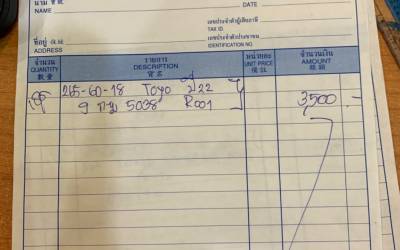 นาม
NAME
DATE
เลขประจำตัวผู้เสียภาษี
TAX ID
ที่อยู่
ADDRESS
เลขประจำตัวประชาชน
IDENTIFICATION NO.
จำนวน
QUANTITY
數量
รายการ
DESCRIPTION
หน่วยละ
UNIT PRICE
จำนวนเงิน
AMOUNT
265-60-18 TOYO ปี22
9 5038 R001
3,500 -